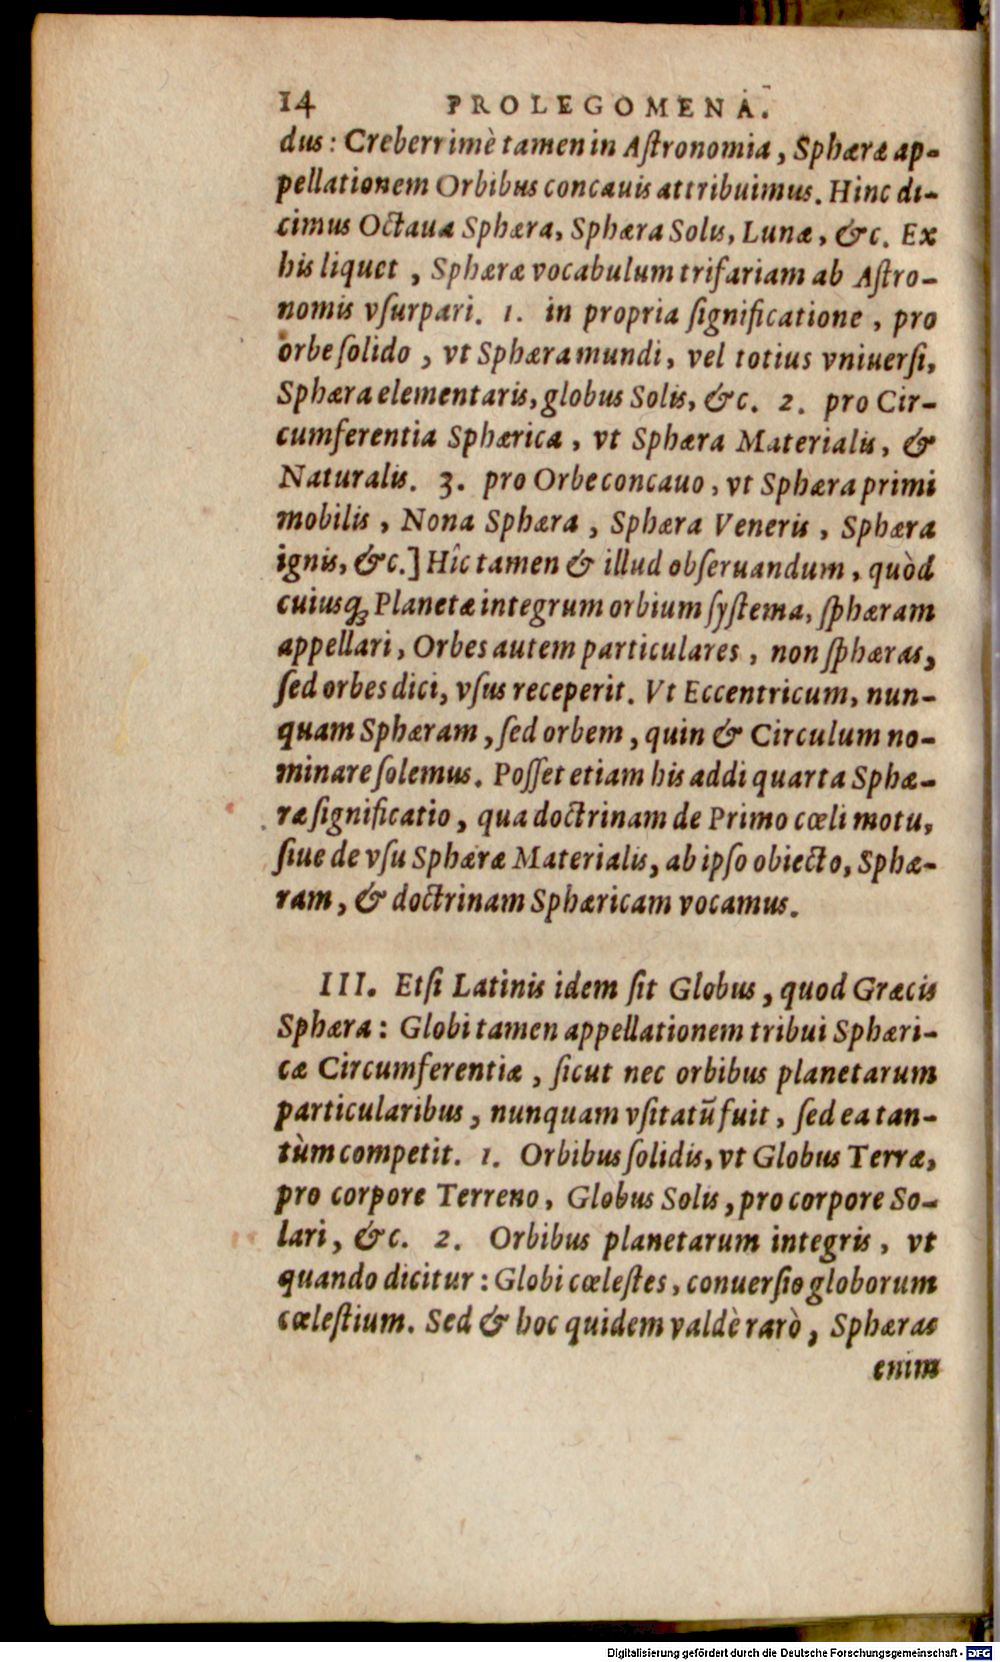 14 PROLEGOMENA.
dus: Creberrimè tamen in Aſtronomia, Sphæræ ap-
pellationem Orbibus concauis attribuimus. Hinc di-
cimus Octaua Sphæra, Sphæra Solis, Lunæ, &c. Ex
his liquet, Sphæræ vocabulum trifariam ab Aſtro-
nomis vſurpari. 1. in propria ſignificatione, pro
orbe ſolido, vt Sphæra mundi, vel totius vniuerſi,
Sphæra elementaris, globus Solis, &c. 2. pro Cir-
cumferentia Sphærica, vt Sphæra Materialis, &
Naturalis. 3. pro Orbe concauo, vt Sphæra primi
mobilis, Nona Sphæra, Sphæra Veneris, Sphæra
ignis, &c.] Hîc tamen & illud obſeruandum, quòd
cuiusq; Planetæ integrum orbium ſyſtema, ſphæram
appellari, Orbes autem particulares, non ſphæras,
ſed orbes dici, vſus receperit. Vt Eccentricum, nun-
quam Sphæram, ſed orbem, quin & Circulum no-
minare ſolemus. Poſſet etiam his addi quarta Sphæ-
ræ ſignificatio, qua doctrinam de Primo cœli motu,
ſiue de vſu Sphæræ Materialis, ab ipſo obiecto, Sphæ-
ram, & doctrinam Sphæricam vocamus.
III. Etſi Latinis idem ſit Globus, quod Græcis
Sphæra: Globi tamen appellationem tribui Sphæri-
cæ Circumferentiæ, ſicut nec orbibus planetarum
particularibus, nunquam vſitatū fuit, ſed ea tan-
tùm competit. 1. Orbibus ſolidis, vt Globus Terræ,
pro corpore Terreno, Globus Solis, pro corpore So-
lari, &c. 2. Orbibus planetarum integris, vt
quando dicitur: Globi cœleſtes, conuerſio globorum
cœleſtium. Sed & hoc quidem valdè rarò, Sphæras
enim
Digitalisierung gefördert durch die Deutsche Forschungsgemeinschaft - DFG